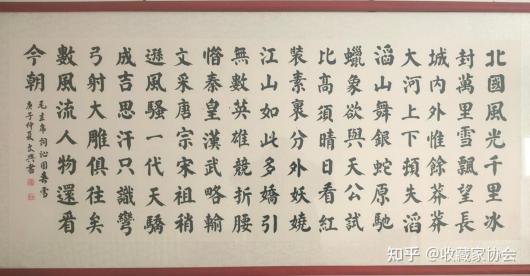 北國風光千里冰
封萬里雪飄望長
城內外惟餘莽莽
大河上下頓失滔
滔山舞銀蛇原馳
蠟象欲與天公試
比高須晴日看紅
裝素裹分外妖嬈
江山如此多嬌引
無數英雄競折腰
惜秦皇漢武略輸
文采唐宗宋祖稍
遜風騷一代天驕
成吉思汗只識彎
弓射大雕俱往矣
數風流人物還看
今朝
毛主席詞沁園春雪
庚子仲夏文興書
知乎 @收藏家协会